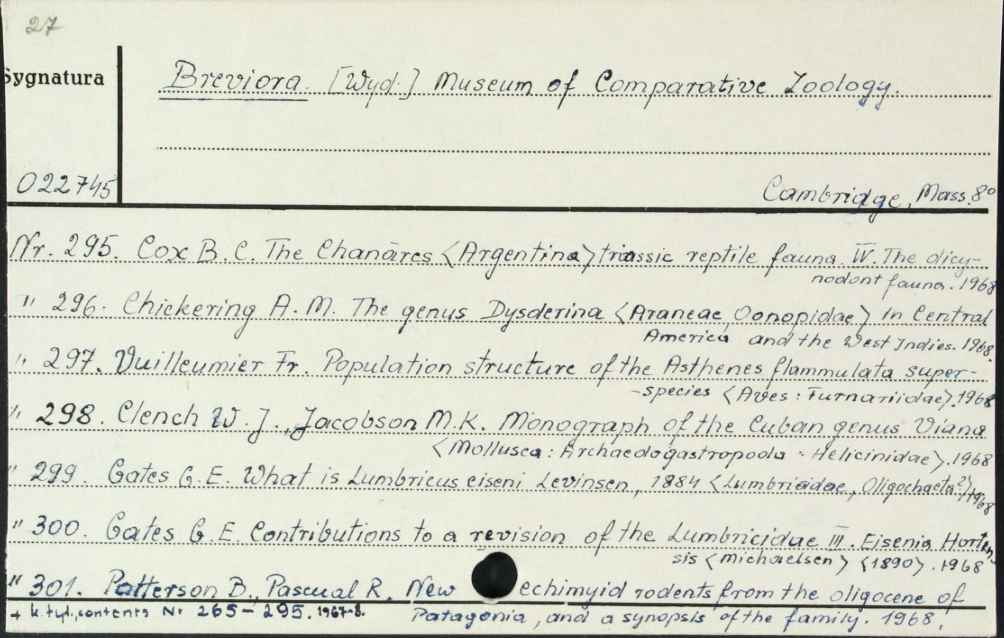 27
Sygnatura
Breviora. [Wyd.] Museum of Comparative Zoology.
022745
Cambridge, Mass. 8°
Nr. 295. Cox B. C. The Chanāres <Argentina> triassic reptile fauna. IV. The dicy-
nodont fauna. 1968
" 296. Chickering A. M. The genus Dysderina <Araneae, Oonopidae> in Central
America and the West Indies. 1968.
" 297. Vuilleumier Fr. Population structure of the Asthenes flammulata super-
-species <Aves: Furnariidae>. 1968
" 298. Clench W. J., Jacobson M. K. Monograph of the Cuban genus Viana
<Mollusca: Archaeogastropoda - Helicinidae>. 1968
" 299. Gates G. E. What is Lumbricus eiseni Levinsen, 1884 <Lumbricidae, Oligochaeta?> 1968
" 300. Gates G. E. Contributions to a revision of the Lumbricidae III. Eisenia Horten
sis <Michaelsen> <1890>. 1968
" 301. Patterson B., Pascual R. New echimyid rodents from the oligocene of
Patagonia, and a synopsis of the family. 1968.
+ k. tyt., contents Nr 265-295. 1967-8.